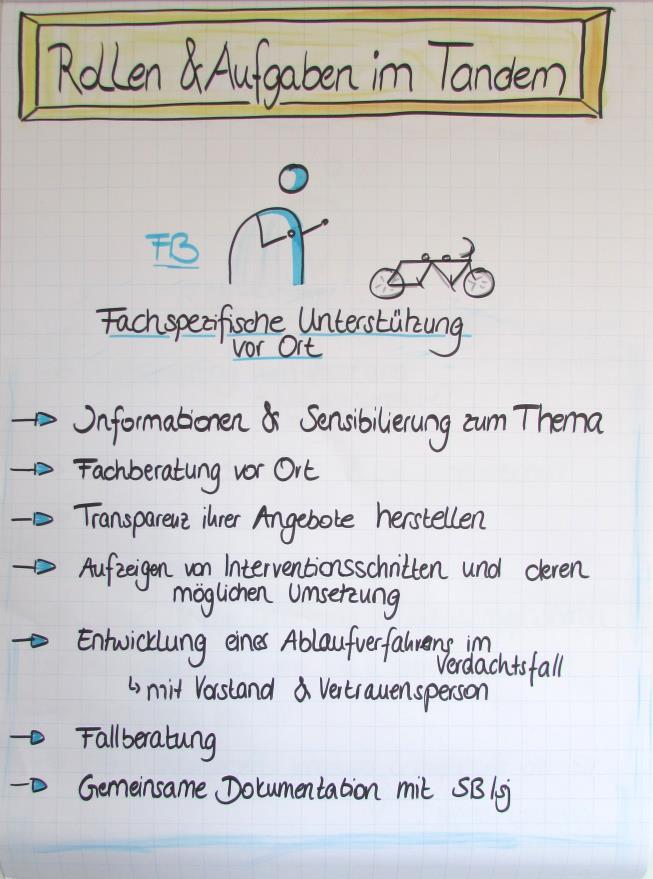 Rollen & Aufgaben im Tandem
FB
Fachspezifische Unterstützung
vor Ort
Informationen & Sensibilierung zum Thema
Fachberatung vor Ort
Transparenz ihrer Angebote herstellen
Aufzeigen von Interventionsschritten und deren
möglichen Umsetzung
Entwicklung eines Ablaufverfahrens im
Verdachtsfall
↳ mit Vorstand & Vertrauensperson
Fallberatung
Gemeinsame Dokumentation mit SB lsj